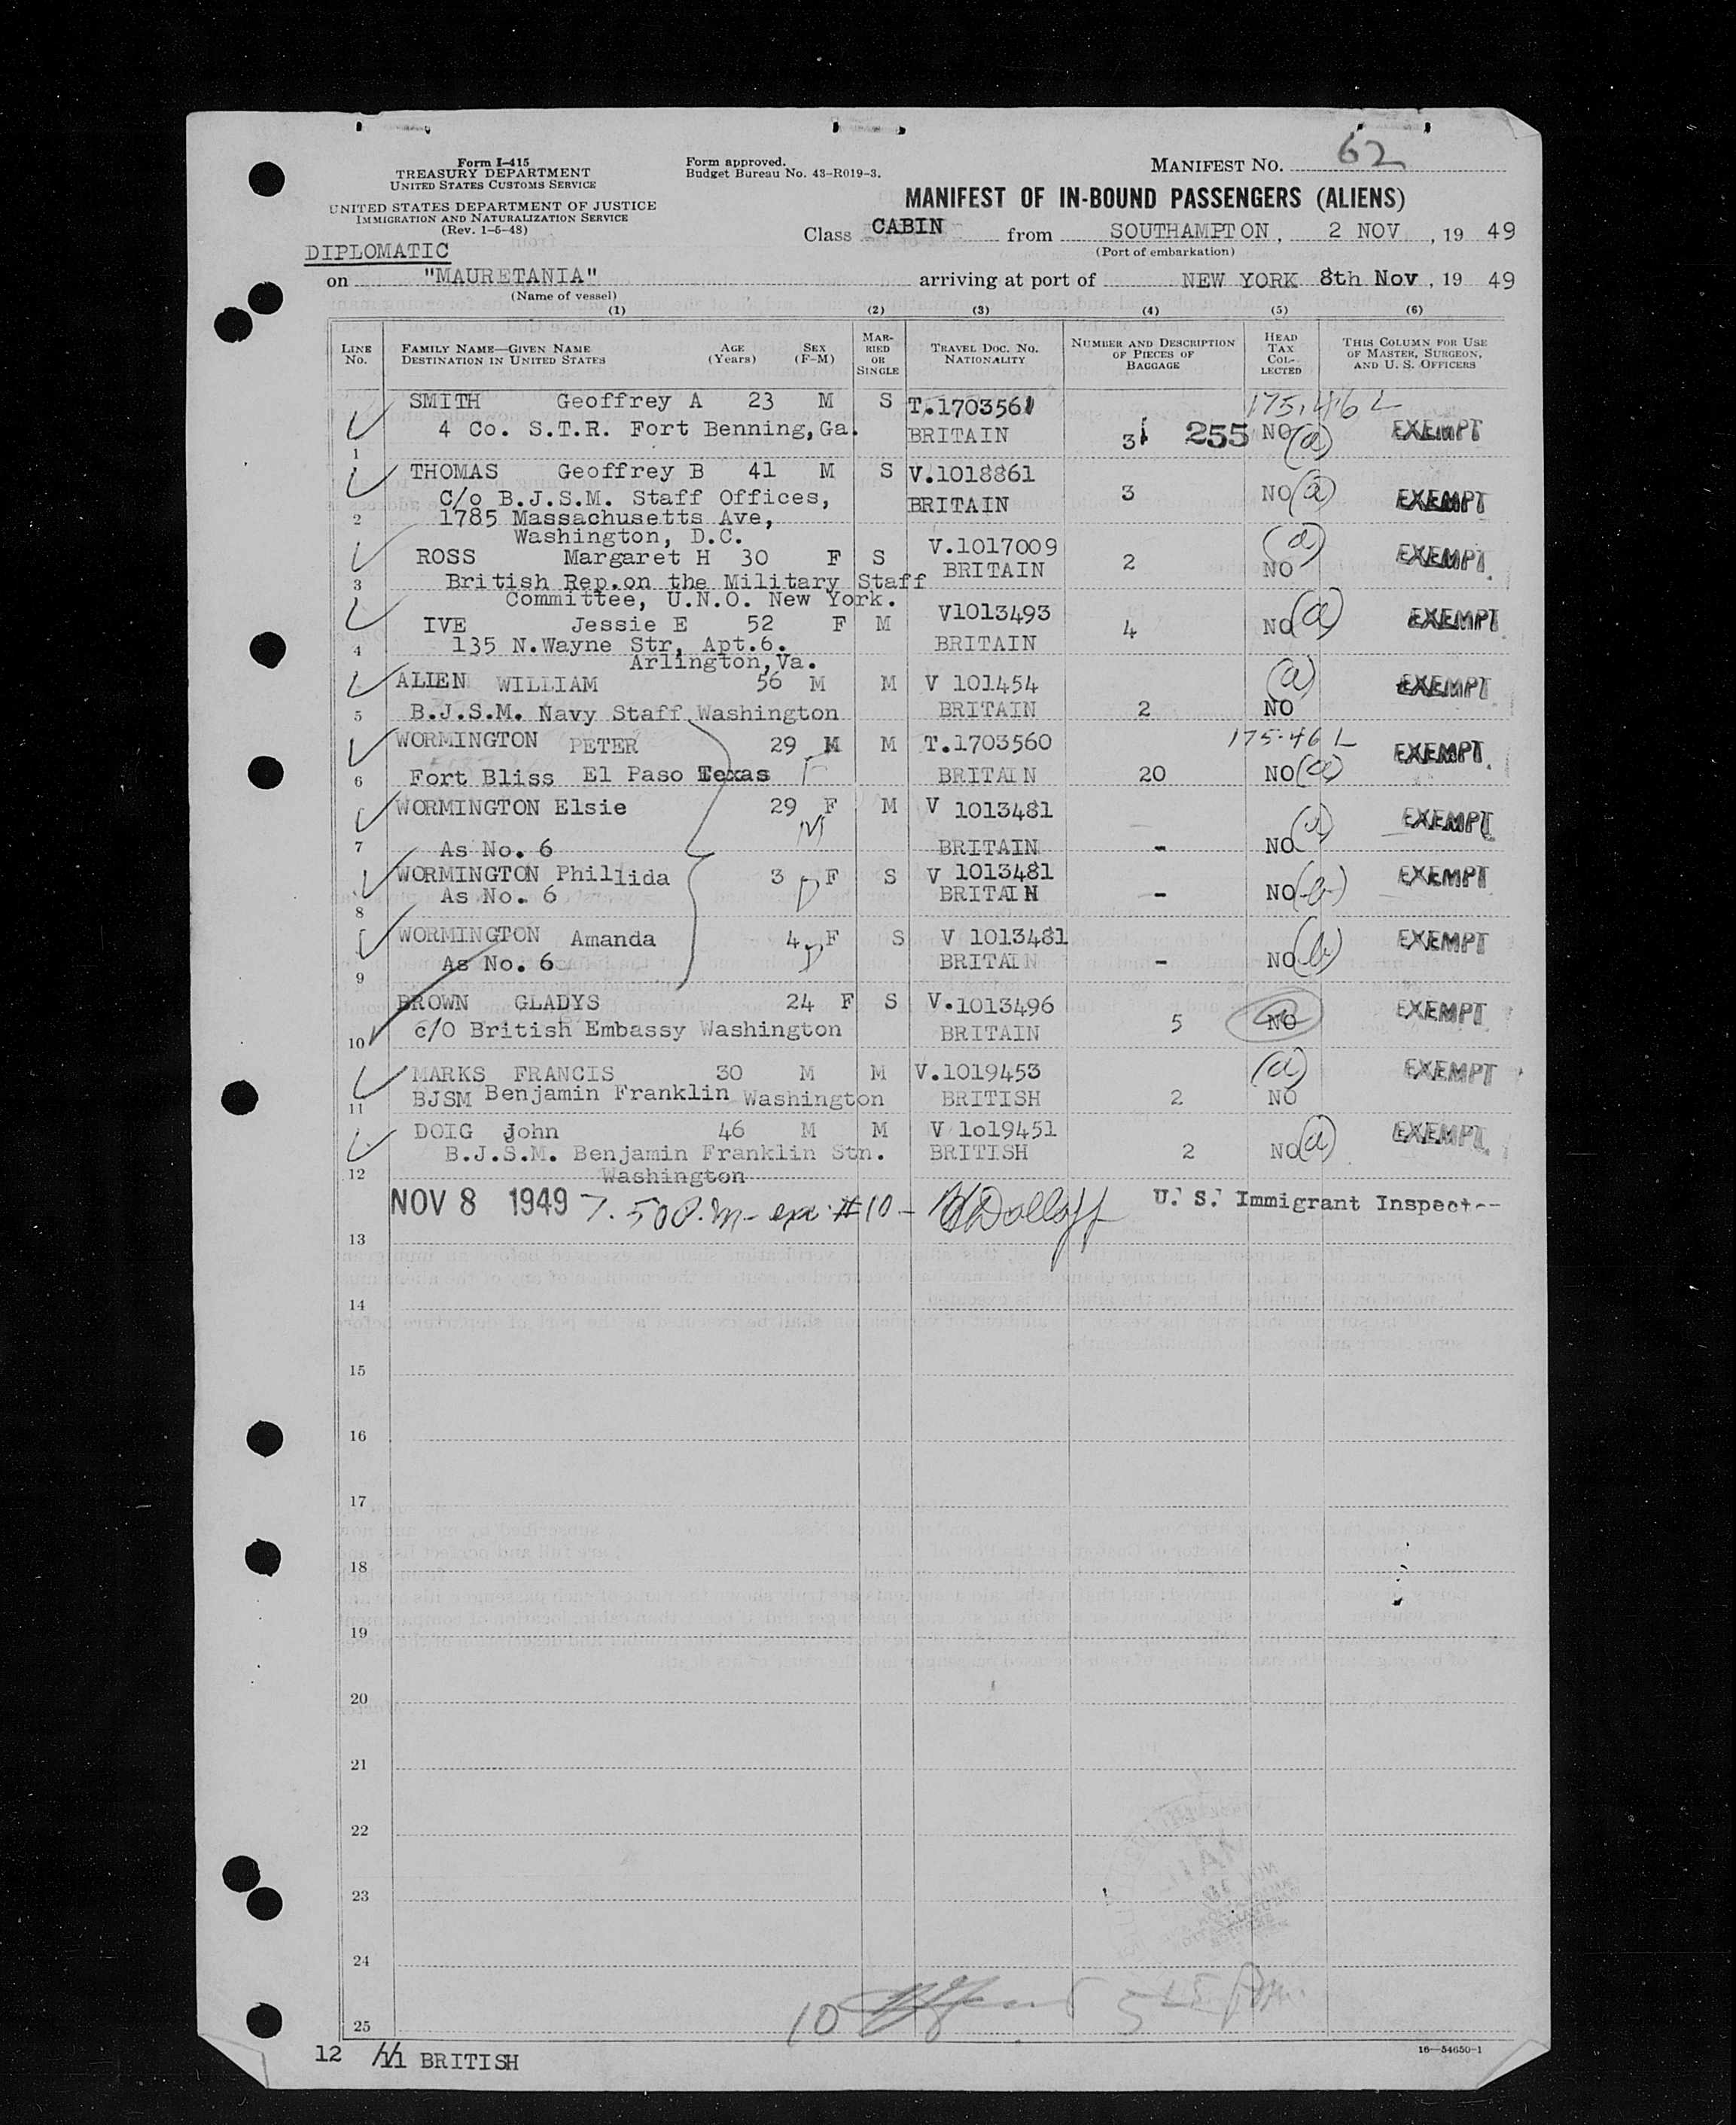 Form I-415
TREASURY DEPARTMENT
UNITED STATES CUSTOMS SERVICE
UNITED STATES DEPARTMENT OF JUSTICE
IMMIGRATION AND NATURALIZATION SERVICE
(Rev. 1-5-48)
Form approved.
Budget Bureau No. 43-R019-3.
MANIFEST NO. 62
MANIFEST OF IN-BOUND PASSENGERS (ALIENS)
Class CABIN from SOUTHAMPTON, 2 NOV, 19 49
(Port of embarkation)
DIPLOMATIC
on "MAURETANIA" arriving at port of NEW YORK 8th Nov, 19 49
(Name of vessel)
(1) (2) (3) (4) (5) (6)
LINE NO. FAMILY NAME—GIVEN NAME DESTINATION IN UNITED STATES AGE (Years) SEX (F-M) MARRIED OR SINGLE TRAVEL DOC. NO. NATIONALITY NUMBER AND DESCRIPTION OF PIECES OF BAGGAGE HEAD TAX COLLECTED THIS COLUMN FOR USE OF MASTER, SURGEON, AND U. S. OFFICERS
SMITH Geoffrey A 23 M S T.1703561 175.46 L
1 4 Co. S.T.R. Fort Benning, Ga. BRITAIN 3 255 NO (a) EXEMPT
THOMAS Geoffrey B 41 M S V.1018861
C/o B.J.S.M. Staff Offices, BRITAIN 3 NO (a) EXEMPT
2 1785 Massachusetts Ave,
Washington, D.C.
ROSS Margaret H 30 F S V.1017009 (a)
3 British Rep.on the Military Staff BRITAIN 2 NO EXEMPT
Committee, U.N.O. New York.
IVE Jessie E 52 F M V1013493
4 135 N.Wayne Str, Apt.6. BRITAIN 4 NO (a) EXEMPT
Arlington,Va.
ALIEN WILLIAM 56 M M V 101454 (a) EXEMPT
5 B.J.S.M. Navy Staff Washington BRITAIN 2 NO
WORMINGTON PETER 29 M M T.1703560 175.46 L EXEMPT
6 Fort Bliss El Paso Texas F BRITAIN 20 NO (a)
WORMINGTON Elsie 29 F M V 1013481 EXEMPT
7 As No. 6 M BRITAIN - NO (a)
WORMINGTON Phillida 3 F S V 1013481 EXEMPT
8 As No. 6 BRITAIN - NO (b)
WORMINGTON Amanda 4 F S V 1013481 EXEMPT
9 As No. 6 BRITAIN - NO (b)
BROWN GLADYS 24 F S V.1013496 EXEMPT
10 c/O British Embassy Washington BRITAIN 5 NO
MARKS FRANCIS 30 M M V.1019453 (a) EXEMPT
11 BJSM Benjamin Franklin Washington BRITISH 2 NO
DOIG John 46 M M V 1o19451 EXEMPT
12 B.J.S.M. Benjamin Franklin Stn. BRITISH 2 NO (a)
Washington
NOV 8 1949 7.50 P.M- exc. #10 - U. S. Immigrant Inspect
13
14
15
16
17
18
19
20
21
22
23
24
10
25
12 11 BRITISH
16—54650-1